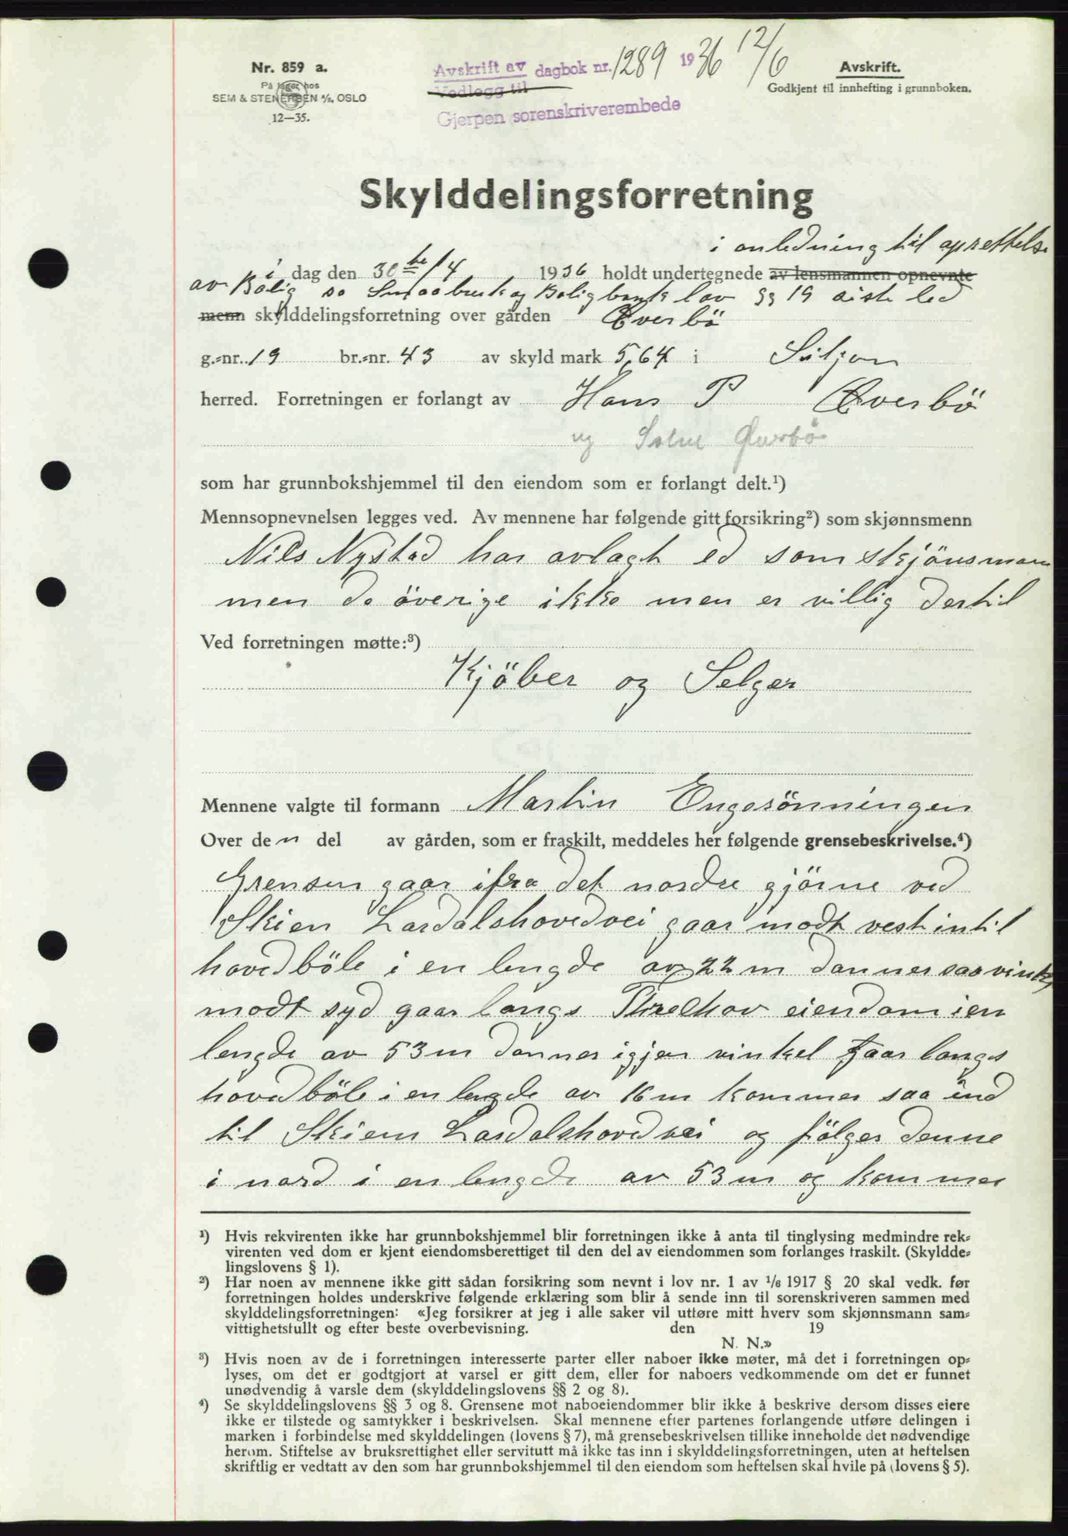 Nr. 859 a.
På lager hos
SEM & STENERSEN A/S, OSLO
12—35.
Avskrift av dagbok nr. 1289 1936 12/6
Vedlegg til
Gjerpen sorenskriverembede
Avskrift.
Godkjent til innhefting i grunnboken.
Skylddelingsforretning
i anledning til oprettelse
i dag den 30te/4 1936 holdt undertegnede av lensmannen opnevnte
av Bolig so Smaabruk og Boligbruk lov §§ 19 siste led
menn skylddelingsforretning over gården Øverbö
g.-nr. 19 br.-nr. 43 av skyld mark 5,64 i Siljan
herred. Forretningen er forlangt av Hans P Øverbö
og Øverbø
som har grunnbokshjemmel til den eiendom som er forlangt delt.¹)
Mennsopnevnelsen legges ved. Av mennene har følgende gitt forsikring²) som skjønnsmenn
Nils Nystad har avlagt ed som skjönsmann
men de överige ikke men er villig dertil
Ved forretningen møtte:³)
Kjöber og Selger
Mennene valgte til formann Martin Engesönningen
Over den del av gården, som er fraskilt, meddeles her følgende grensebeskrivelse.⁴)
Grensen gaar ifra det nordre gjörne ved
Skien Lardalshovedvei gaar modt vest intil
hovedböle i en lengde av 22 m danner saa vinkel
modt syd gaar langs eiendom i en
lengde av 53 m danner igjen vinkel gaar langs
hovedböle i en lengde av 16 m kommer saa ind
til Skiens Lardalshovedvei og fölger denne
i nord i en lengde av 53 m og kommer
¹) Hvis rekvirenten ikke har grunnbokshjemmel blir forretningen ikke å anta til tinglysing medmindre rek-
virenten ved dom er kjent eiendomsberettiget til den del av eiendommen som forlanges fraskilt. (Skyldde-
lingslovens § 1).
²) Har noen av mennene ikke gitt sådan forsikring som nevnt i lov nr. 1 av 1/6 1917 § 20 skal vedk. før
forretningen holdes underskrive følgende erklæring som blir å sende inn til sorenskriveren sammen med
skylddelingsforretningen: «Jeg forsikrer at jeg i alle saker vil utføre mitt hverv som skjønnsmann sam-
vittighetsfullt og efter beste overbevisning. den 19
N. N.»
³) Hvis noen av de i forretningen interesserte parter eller naboer ikke møter, må det i forretningen op-
lyses, om det er godtgjort at varsel er gitt dem, eller for naboers vedkommende om det er funnet
unødvendig å varsle dem (skylddelingslovens §§ 2 og 8).
⁴) Se skylddelingslovens §§ 3 og 8. Grensene mot naboeiendommer blir ikke å beskrive dersom disses eiere
ikke er tilstede og samtykker i beskrivelsen. Skal mennene efter partenes forlangende utføre delingen i
marken i forbindelse med skylddelingen (lovens § 7), må grensebeskrivelsen tillike inneholde det nødvendige
herom. Stiftelse av bruksrettighet eller servitutt må ikke tas inn i skylddelingsforretningen, uten at heftelsen
skriftlig er vedtatt av den som har grunnbokshjemmel til den eiendom som heftelsen skal hvile på (lovens § 5).